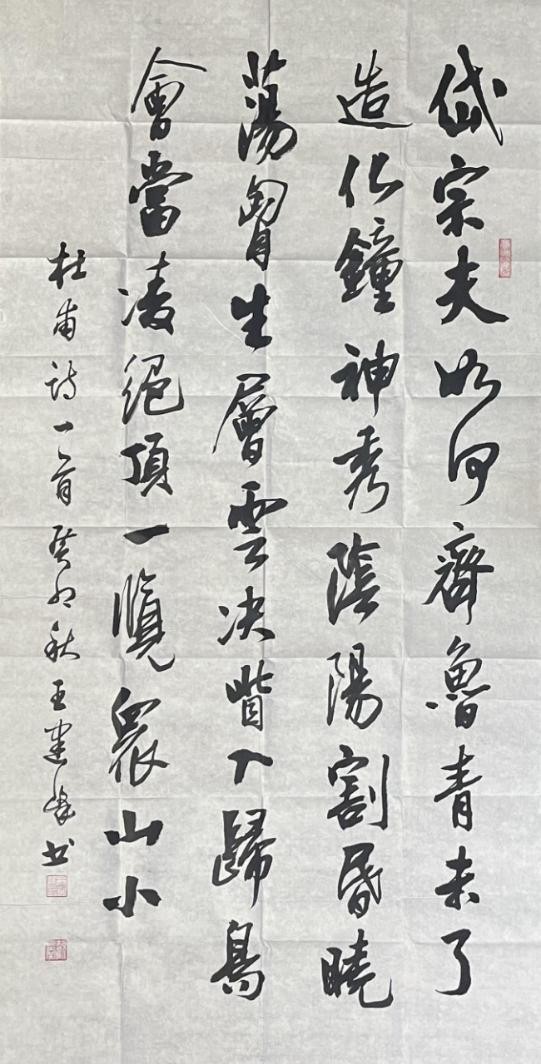 岱宗夫如何齊魯青未了
造化鐘神秀陰陽割昏曉
蕩胷生層雲决眥入歸鳥
會當凌絕頂一覽衆山小
杜甫詩一首癸卯秋王建峰书